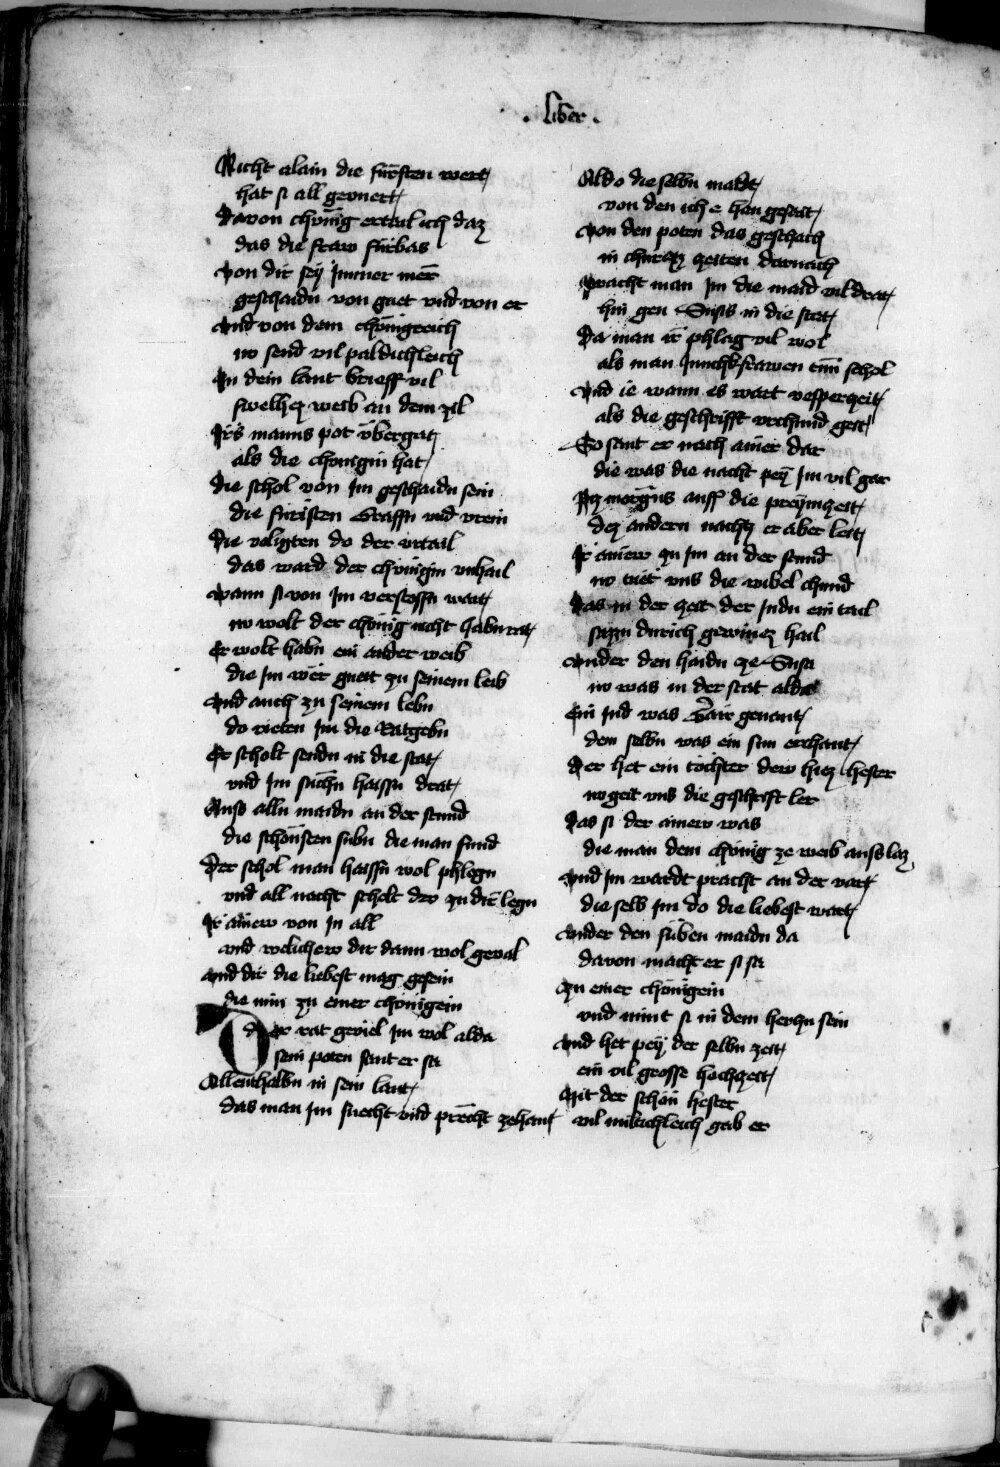 . Liber .
Nicht alain die fürsten wert
hat si all geunert
Davon chönig ertail ich daz
das die fraw fürbas
Von dir sey Immer mer
geschaidn von guet vnd von er
Vnd von dem chönigreich
no send vil paldichleich
In dein lant brieff vil
swelhez weib an dem zil
Irs manns pot vbergat
als die chonigin hat
Die schol von Im geschaidn sein
die furisten Graffn vnd vrein
Die voligten do der vrtail
das ward der chönigin vnhail
Wann si von Im verstossn wart
no wolt der chönig nicht habn rat
Er wolt habn ein ander weib
die Im wer guett zu seinem leib
Vnd auch zu seinem lebn
do rieten Im die Ratgebn
Er scholt sendn in die stat
vnd Im suchn haissn drat
Auss alln maidn an der stund
die schönsten sibn die man fund
Der schol man haissn wol phlegn
vnd all nacht scholt dew zu dir legn
Ir ainew von In all
vnd welichew dir dann wol geval
Vnd dir die liebest mag gesein
die nim zu einer chönigein
Der rat geviel Im wol alda
sein poten sant er sa
Allenthalbn in sein lant
das man Im suecht vnd precht zehant
Aldo die selbn maidt
von den ich e han gesait
Von den poten das geschach
in churczn zeiten darnach
Pracht man Im die maid vil drat
hin gen Susis in die stat
Da man ir phlag vil wol
als man Junchkfrawen tun schol
Vnd ie wann es wart vesperzeit
als die geschrifft vrchund geit
So sant er nach ainer dar
die was die nacht pey Im vil gar
Piz morgns auff die preymzeit
dez andern nachtz er aber leit
Ir ainew zu Im an der stund
no tuet vns die wibel chund
Das in der zeit der Judn ein tail
sazzn durich gewinez hail
Vnder den haidn ze Susa
no was in der stat alda
Ein Jud was Gair genant
dem selbn was ein sun erchant
Der het ein tochter dew hiez hester
no geit vns die geschrift ler
Das si der ainew was
die man dem chönig ze weib ausslaz
Vnd Im wardt pracht an der vart
die selb Im do die liebest wart
Vnder den siben maidn da
davon macht er si sa
Zu einer chönigein
vnd nimt si in dem herczn sein
Vnd het pey der selbn zeit
ein vil grosse hochzeit
Mit der schon hester
vil miltichleich gab er